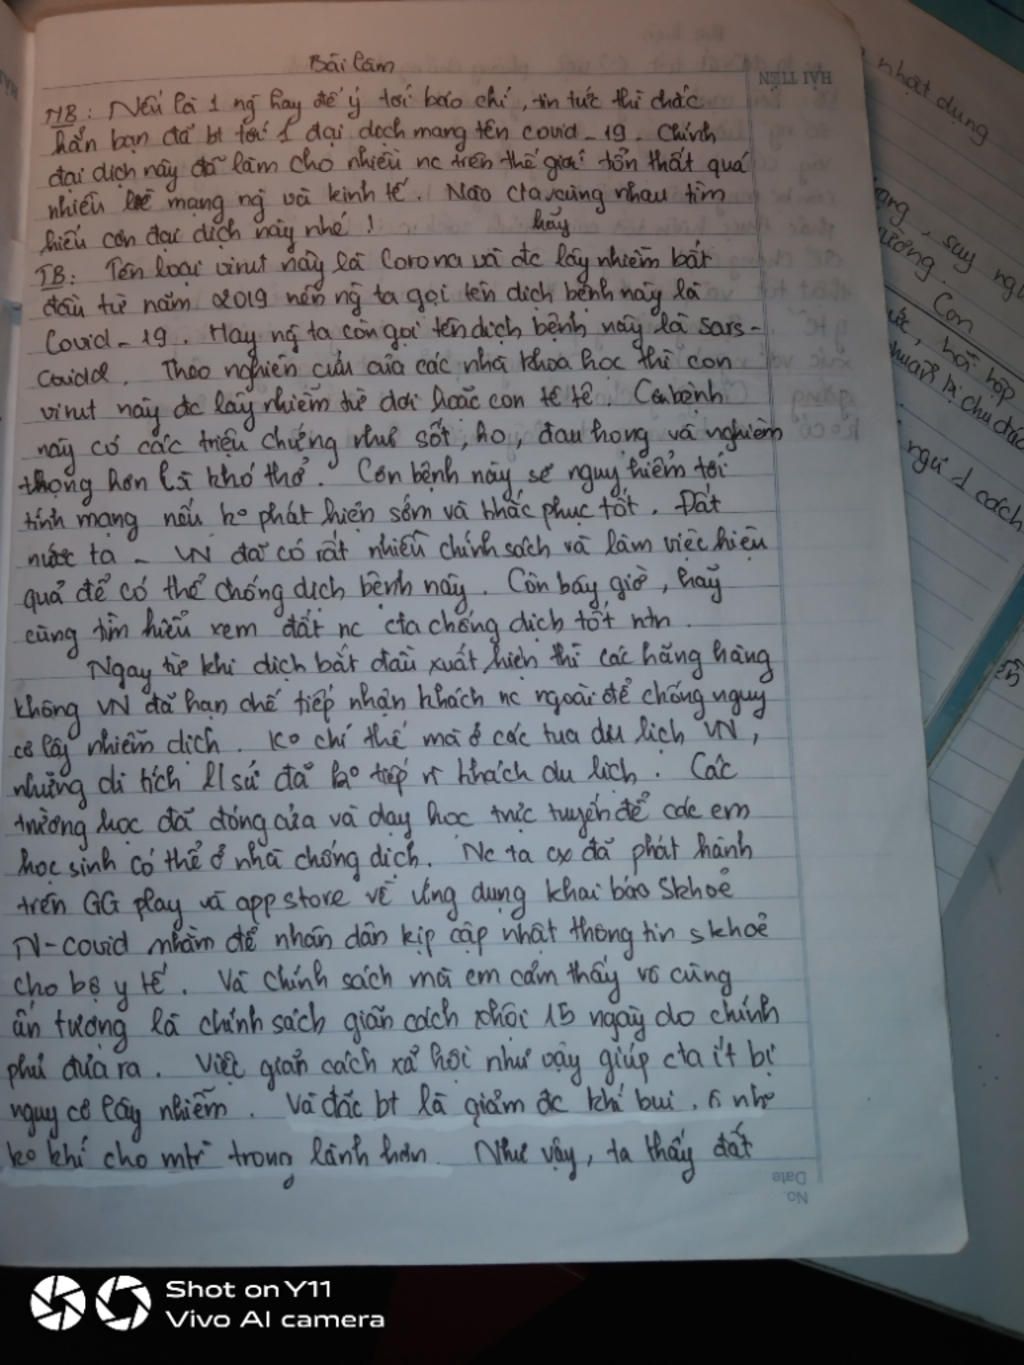 Bài làm
HẢI TIẾN
MB: Nếu là 1 ng hay để ý tới báo chí, tin tức thì chắc
hẳn bạn đã bt tới 1 đại dịch mang tên covid-19. Chính
đại dịch này đã làm cho nhiều nc trên thế giới tổn thất quá
nhiều mạng ng và kinh tế. Nào cta cùng nhau tìm
hãy
hiểu cơn đại dịch này nhé!
TB: Tên loại virut này là Corona và đc lây nhiễm bắt
đầu từ năm 2019 nên ng ta gọi tên dịch bệnh này là
Covid-19. Hay ng ta còn gọi tên dịch bệnh này là sars-
Theo nghiên cứu của các nhà khoa học thì con
virut này đc lây nhiễm từ dơi hoặc con tê tê. Căn bệnh
này có các triệu chứng như sốt, ho, đau họng và nghiêm
trọng hơn là khó thở. Căn bệnh này sẽ nguy hiểm tới
tính mạng nếu ko phát hiện sớm và khắc phục tốt. Đất
nước ta - VN đã có rất nhiều chính sách và làm việc hiệu
quả để có thể chống dịch bệnh này. Còn bây giờ, hãy
cùng tìm hiểu xem đất nc cta chống dịch tốt ntn.
Ngay từ khi dịch bắt đầu xuất hiện thì các hãng hàng
không VN đã hạn chế tiếp nhận khách nc ngoài để chống nguy
cơ lây nhiễm dịch. Ko chỉ thế mà ở các tua du lịch VN,
những di tích lịch sử đã ko tiếp khách du lịch. Các
trường học đã đóng cửa và dạy học trực tuyến để các em
học sinh có thể ở nhà chống dịch. Nc ta cx đã phát hành
trên GG play và app store về ứng dụng khai báo skhoẻ
N-covid nhằm để nhân dân kịp cập nhật thông tin skhoẻ
cho bộ y tế. Và chính sách mà em cảm thấy vô cùng
ấn tượng là chính sách giãn cách xhội 15 ngày do chính
phủ đưa ra. Việc giãn cách xã hội như vậy giúp cta ít bị
nguy cơ lây nhiễm. Và đặc bt là giảm đc khí bụi, ô nh
ko khí cho mtr trong lành hơn. Như vậy, ta thấy đất
No.
Date
nhạt dung
, say ngủ
Con
, hồi hộp
chuẩn bị chu đáo
ngứ 1 cách
Shot on Y11
Vivo AI camera